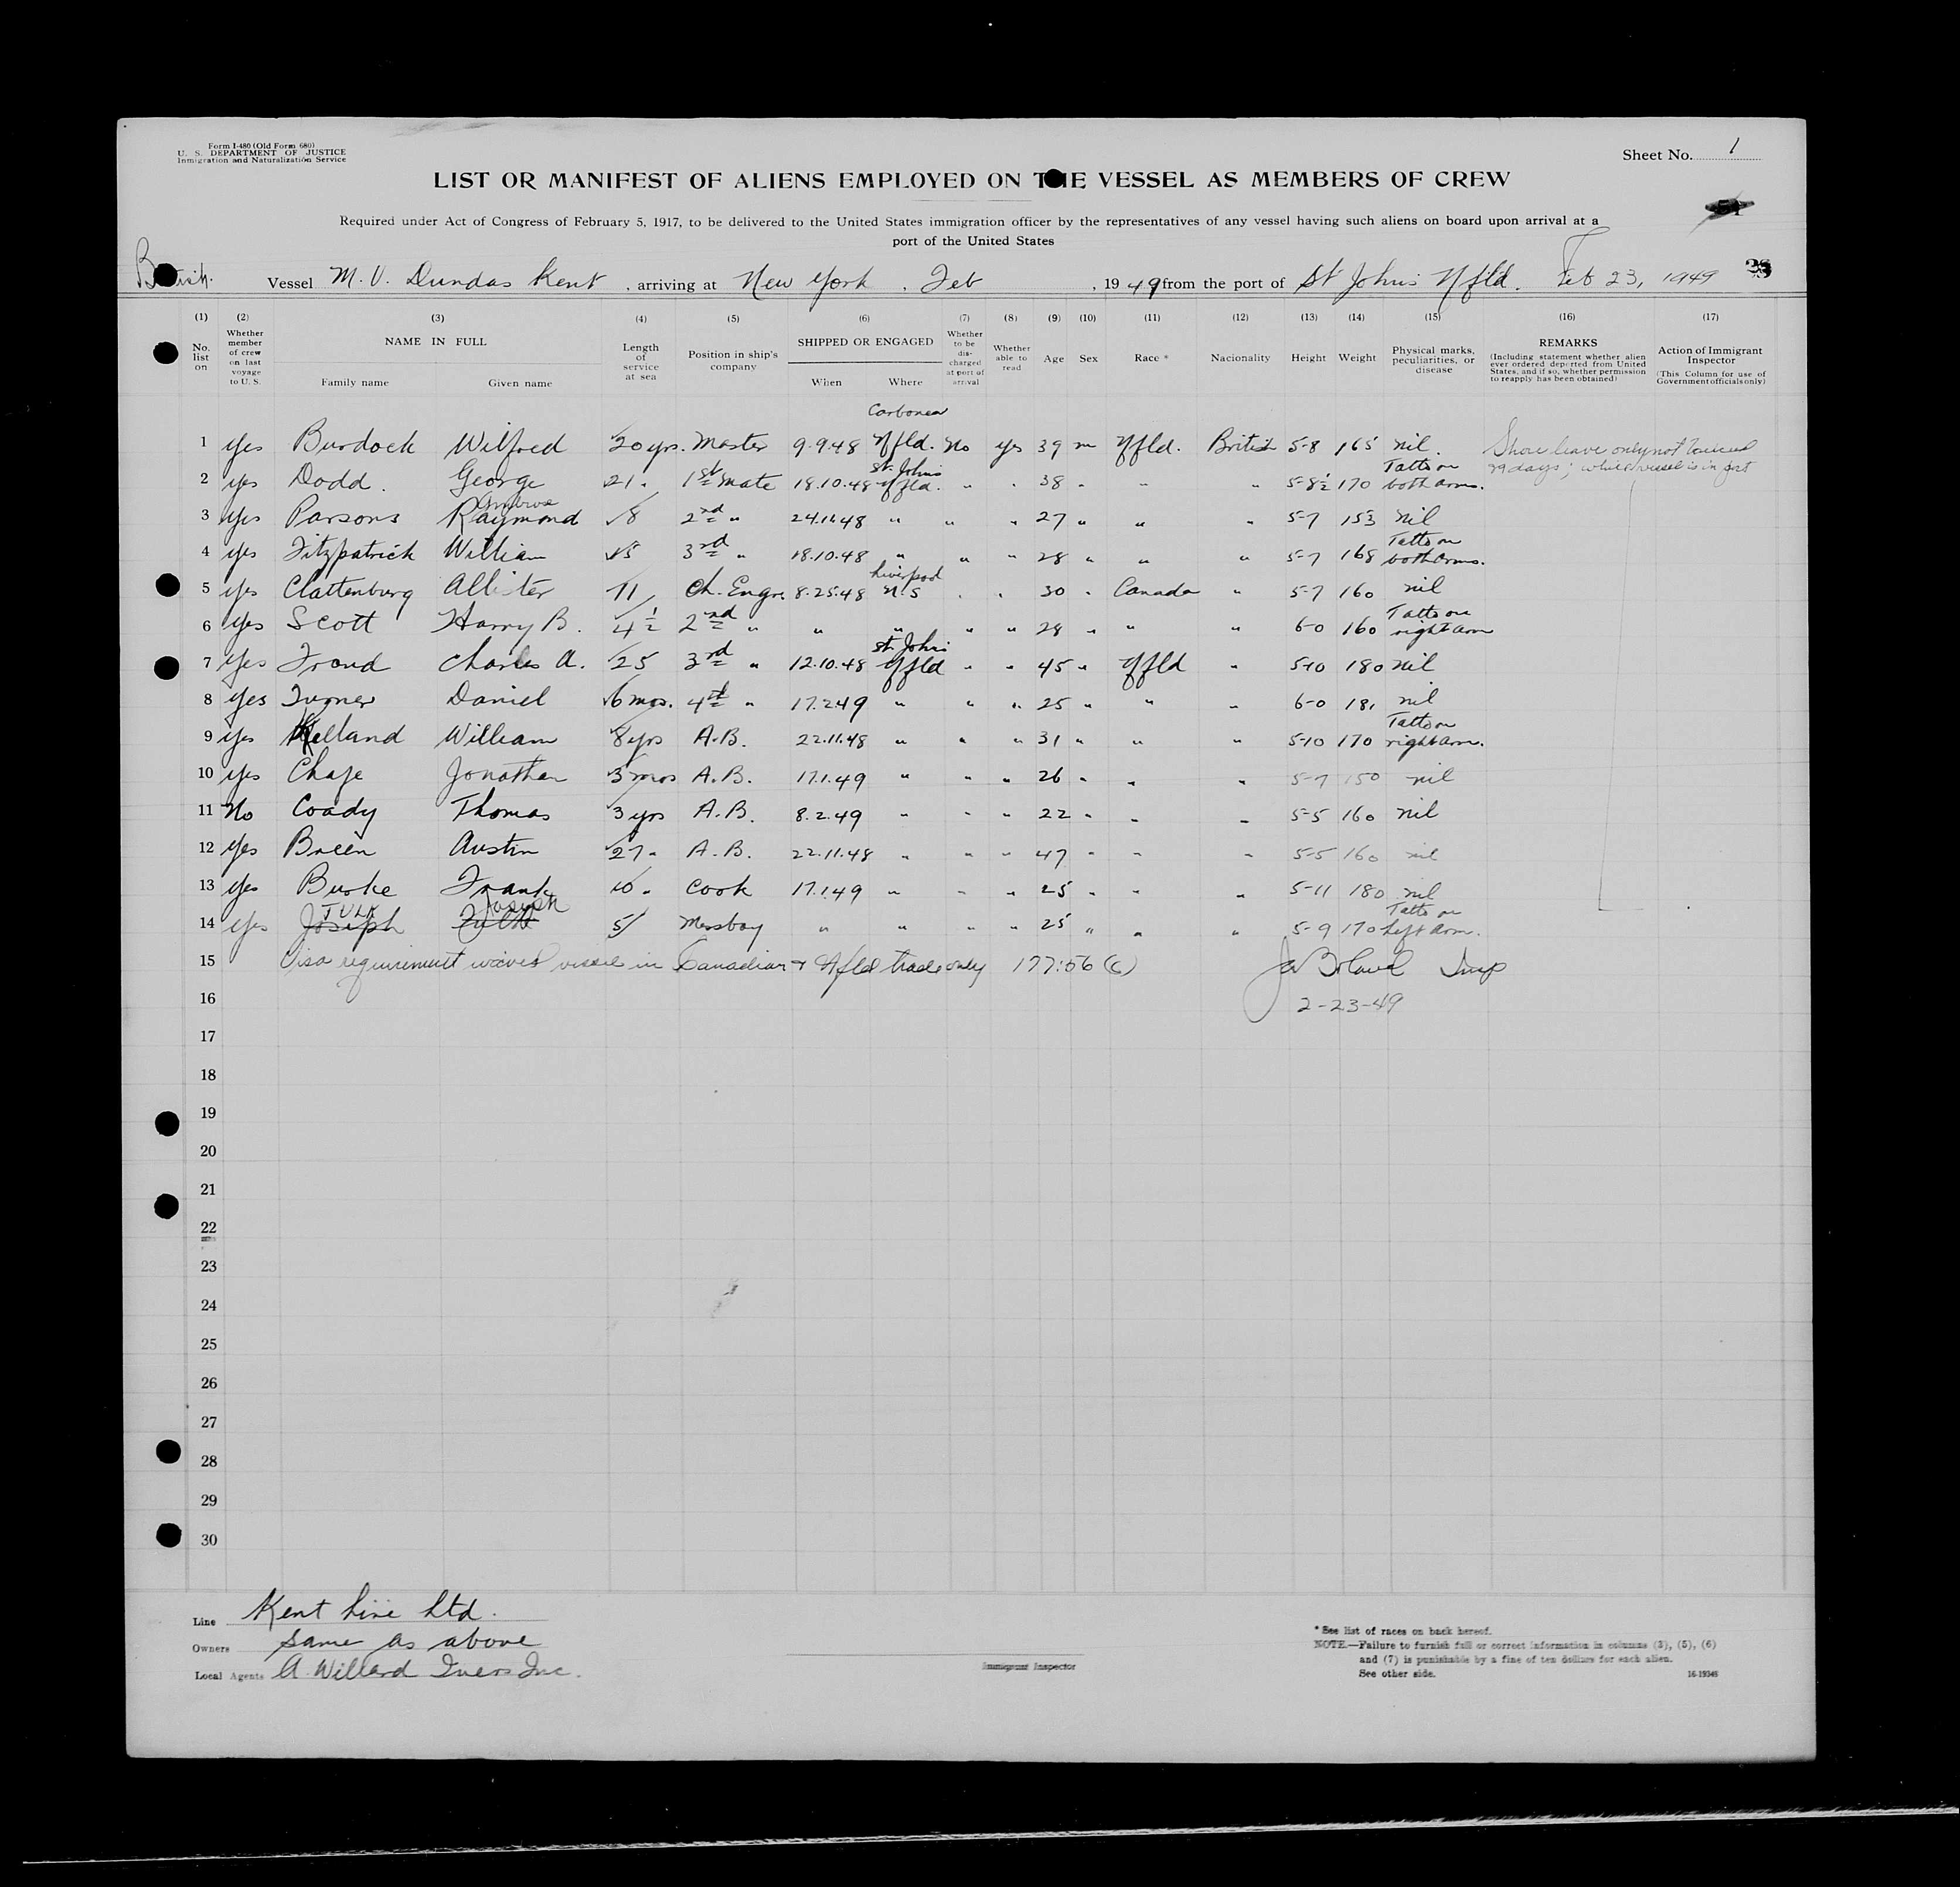 Form I-480 (Old Form 680)
U. S. DEPARTMENT OF JUSTICE
Immigration and Naturalization Service
Sheet No. 1
LIST OR MANIFEST OF ALIENS EMPLOYED ON THE VESSEL AS MEMBERS OF CREW
Required under Act of Congress of February 5, 1917, to be delivered to the United States immigration officer by the representatives of any vessel having such aliens on board upon arrival at a
port of the United States
British. Vessel M. V. Dundas Kent, arriving at New York, Feb, 1949 from the port of St Johns Nfld. Feb 23, 1949
(1) (2) (3) (4) (5) (6) (7) (8) (9) (10) (11) (12) (13) (14) (15) (16) (17)
No. list on
Whether member of crew on last voyage to U. S.
NAME IN FULL
Family name Given name
Length of service at sea
Position in ship's company
SHIPPED OR ENGAGED
When Where
Whether to be discharged at port of arrival
Whether able to read
Age
Sex
Race *
Nacionality
Height
Weight
Physical marks, peculiarities, or disease
REMARKS
(Including statement whether alien ever ordered deported from United States, and if so, whether permission to reapply has been obtained)
Action of Immigrant Inspector
(This Column for use of Government officials only)
Carbonear
1 yes Burdock Wilfred 20 yrs. Master 9.9.48 Nfld. No yes 39 m Nfld. British 5-8 165 nil. Shore leave only not to exceed
29 days; while vessel is in port
2 yes Dodd. George 21 " 1st Mate 18.10.48 St. Johns Nfld. " " 38 " " " 5-8½ 170 Tatto on both arms.
3 yes Parsons Raymond Ambrose 8 2nd " 24.11.48 " " " 27 " " " 5-7 153 nil
4 yes Fitzpatrick William 15 3rd " 18.10.48 " " " 28 " " " 5-7 168 Tatto on both arms.
5 yes Clattenburg Allister 11 Ch. Engr 8.25.48 Liverpool N.S " " 30 " Canada " 5-7 160 nil
6 yes Scott Harry B. 4½ 2nd " " " " " 28 " " " 6-0 160 Tatto on right arm
7 yes Froud Charles A. 25 3rd " 12.10.48 St. Johns Nfld " " 45 " Nfld " 5-10 180 nil
8 yes Turner Daniel 6 mos. 4th " 17.2.49 " " " 25 " " " 6-0 181 nil
9 yes Kelland William 8 yrs A.B. 22.11.48 " " " 31 " " " 5-10 170 Tatto on right arm.
10 yes Chafe Jonathan 3 mos A.B. 17.1.49 " " " 26 " " " 5-7 150 nil
11 No Coady Thomas 3 yrs A.B. 8.2.49 " " " 22 " " " 5-5 160 nil
12 yes Breen Austin 27 " A.B. 22.11.48 " " " 47 " " " 5-5 160 nil
13 yes Burke Frank 10 " Cook 17.1.49 " " " 25 " " " 5-11 180 nil
14 yes Joseph TULK Tulk Joseph 5 Messboy " " " " 25 " " " 5-9 170 Tatto on left arm.
15 Visa requirement waived vessel in Canadian & Nfld trade only 177:56 (c) Insp
16 2-23-49
17
18
19
20
21
22
23
24
25
26
27
28
29
30
Line Kent Line Ltd.
Owners Same as above
Local Agents A. Willard Ivers Inc.
Immigrant Inspector
* See list of races on back hereof.
NOTE.—Failure to furnish full or correct information in columns (3), (5), (6)
and (7) is punishable by a fine of ten dollars for each alien.
See other side.
16-19348